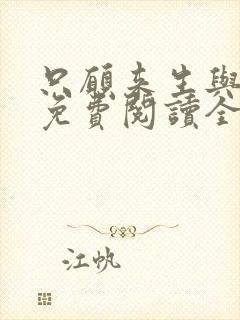 只願来生與
免費閱讀全
江帆